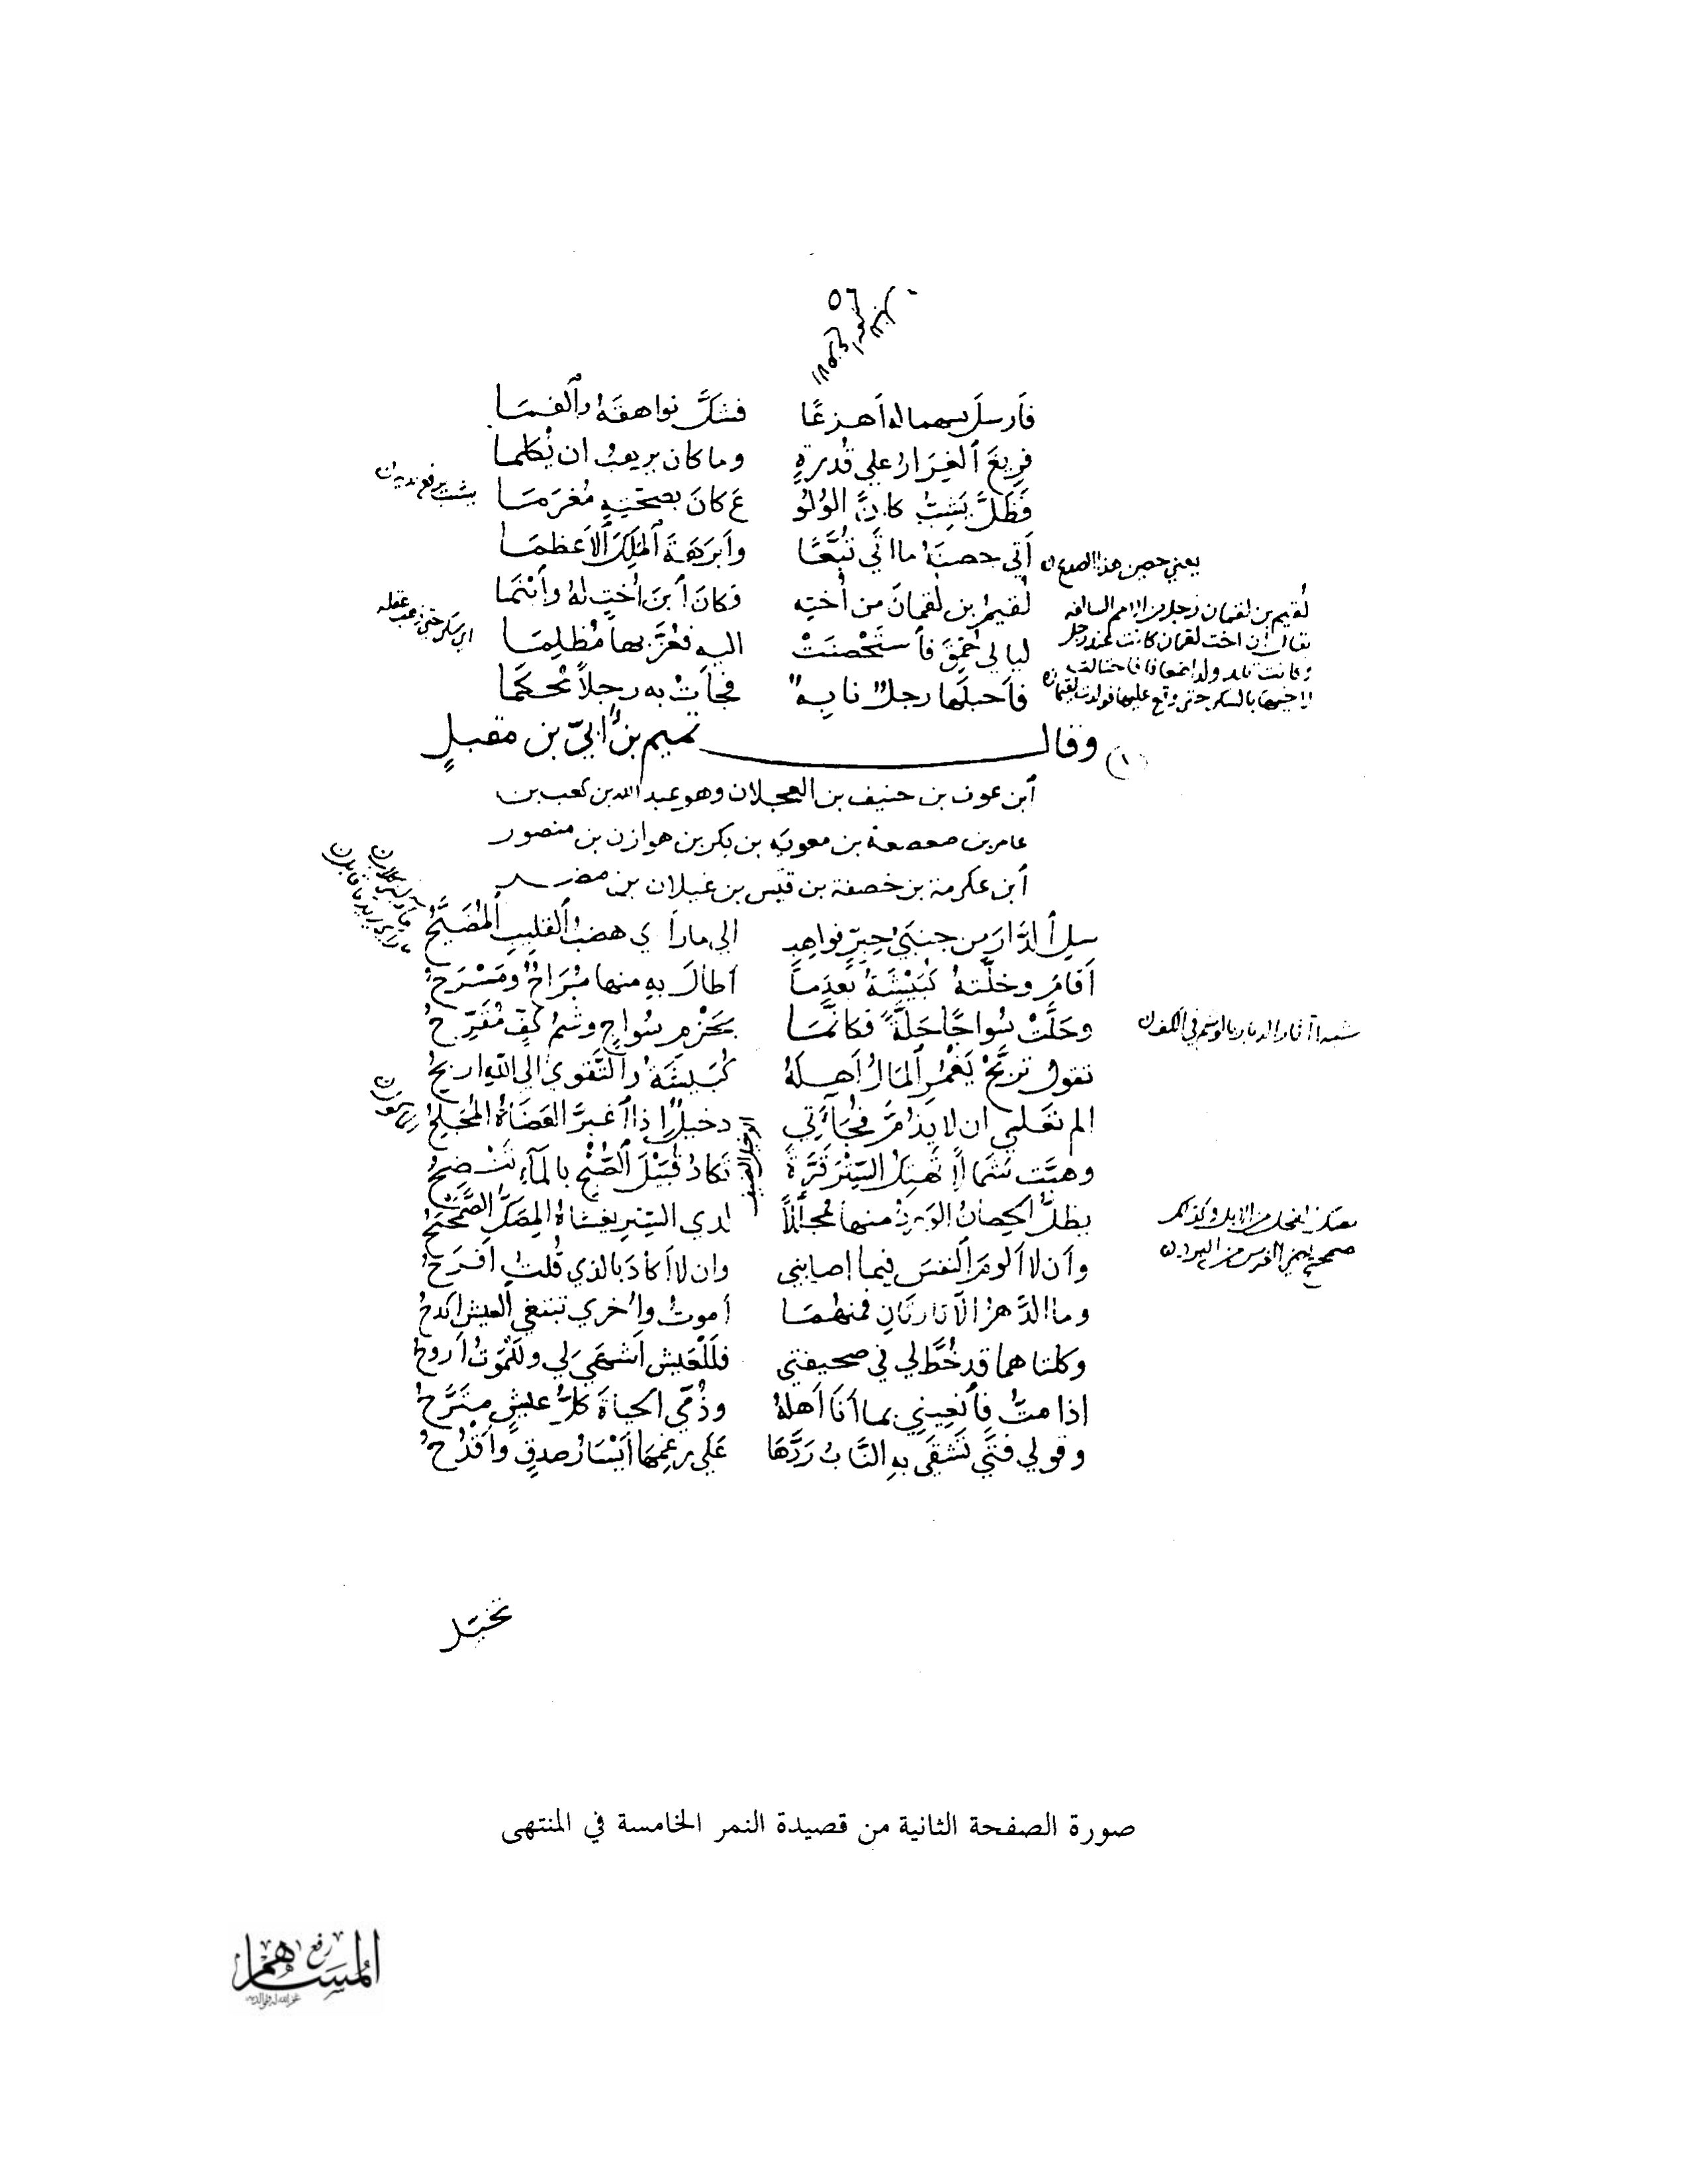 ٥٦
فَأرسلَ سهما له أَهزعًا فشكَّ نواهقَهُ والفما
فريغَ الغِرَارِ على قُدرةٍ وما كان يرهبُ ان يُكلما
فَظلَّ يَشِبُّ كانَّ الوُلُو عَ كانَ بصحّتِهِ مُغرَمَا
يشب يرفع يديه
أتى حصنَهُ ما اتى تُبَّعًا وأبرَهَةَ المَلِكَ الأعظمَا
يعني حصن هذا الصدع
لُقيمُ بن لُقمانَ من أُختِهِ فكانَ ابنَ أُختٍ لهُ وابْنَما
لقيم بن لقمان رجل من الامم السالفة
ليالي حُمِّقَ فاستَحْصَنَتْ اليهِ فغُرَّ بها مُظلِمَا
يقال ان اخت لقمان كانت عند رجل
فأحبلَها رجلٌ نابهٌ فجاءت به رجلاً مُحكَمَا
وقال تميم بن أُبيّ بن مقبلٍ
(١)
ابن عوف بن حنيف بن العجلان وهو عبد الله بن كعب بن
عامر بن صعصعة بن معوية بن بكر بن هوازن بن منصور
ابن عكرمة بن خصفة بن قيس بن عيلان بن مضر
سل الدَّارَ من جنبَي حِبِرٍّ فواهبِ الى ما رأى هضبُ القليبِ المُضَيَّحُ
أقامَ وخلَّتهُ كُبَيْشَةُ بعدما أطالَ بهِ منها مُرَاحٌ ومَسْرَحُ
وحَلَّتْ سُواجًا حَلَّةً فكانَّما بحَزْمِ سُواجٍ وشمُ كفٍّ مُقَرَّحُ
شبه آثار الديار بالوشم في الكف
تقول تربَّحْ يَغْمُرِ المَالُ أهلَهُ كُبَيشَةُ والتَّقوى الى اللهِ اربحُ
الم تعلمي ان لا يذمَّ فُجاءَتي دخيلٌ اذا اغبرَّ العَضَاهُ المُجَلَّحُ
الدخيل الضيف
وهبَّت شَمالًا تهتِكُ السِّتْرَ قَرَّةً تكادُ قُبَيْلَ الصُّبْحِ بالماءِ تَنْضِحُ
يظلُّ الحِصانُ الوَرْدُ منها مُجلَّلاً لدى السِّترِ يغشاهُ المِصَكُّ الصَّمَحْمَحُ
وأن لا ألومَ النفسَ فيما اصابني وان لا أكادَ بالذي قُلتُ أفرَحُ
وما الدَّهرُ الّا تارتانِ فمنهما أموتُ وأخرى تبتغي العيشَ أكدحُ
وكلتاهما قد خُطَّ لي في صحيفتي فلَلْعَيشُ أشهى لي ولَلْمَوتُ أروحُ
اذا متُّ فانعيني بما أنَا أهلهُ وذُمّي الحياةَ كلُّ عيشٍ مُتَرَّحُ
وقولي فتًى تَشقَى بهِ النَّابُ رَدَّهَا عَلى رغمِها أيْسَارُ صدقٍ وأقدُحُ
صورة الصفحة الثانية من قصيدة النمر الخامسة في المنتهى
رفع
المساهم
غفر الله له ولوالديه